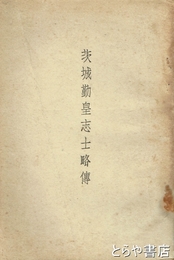 茨城勤皇志士略傳
古書店
とらや書店